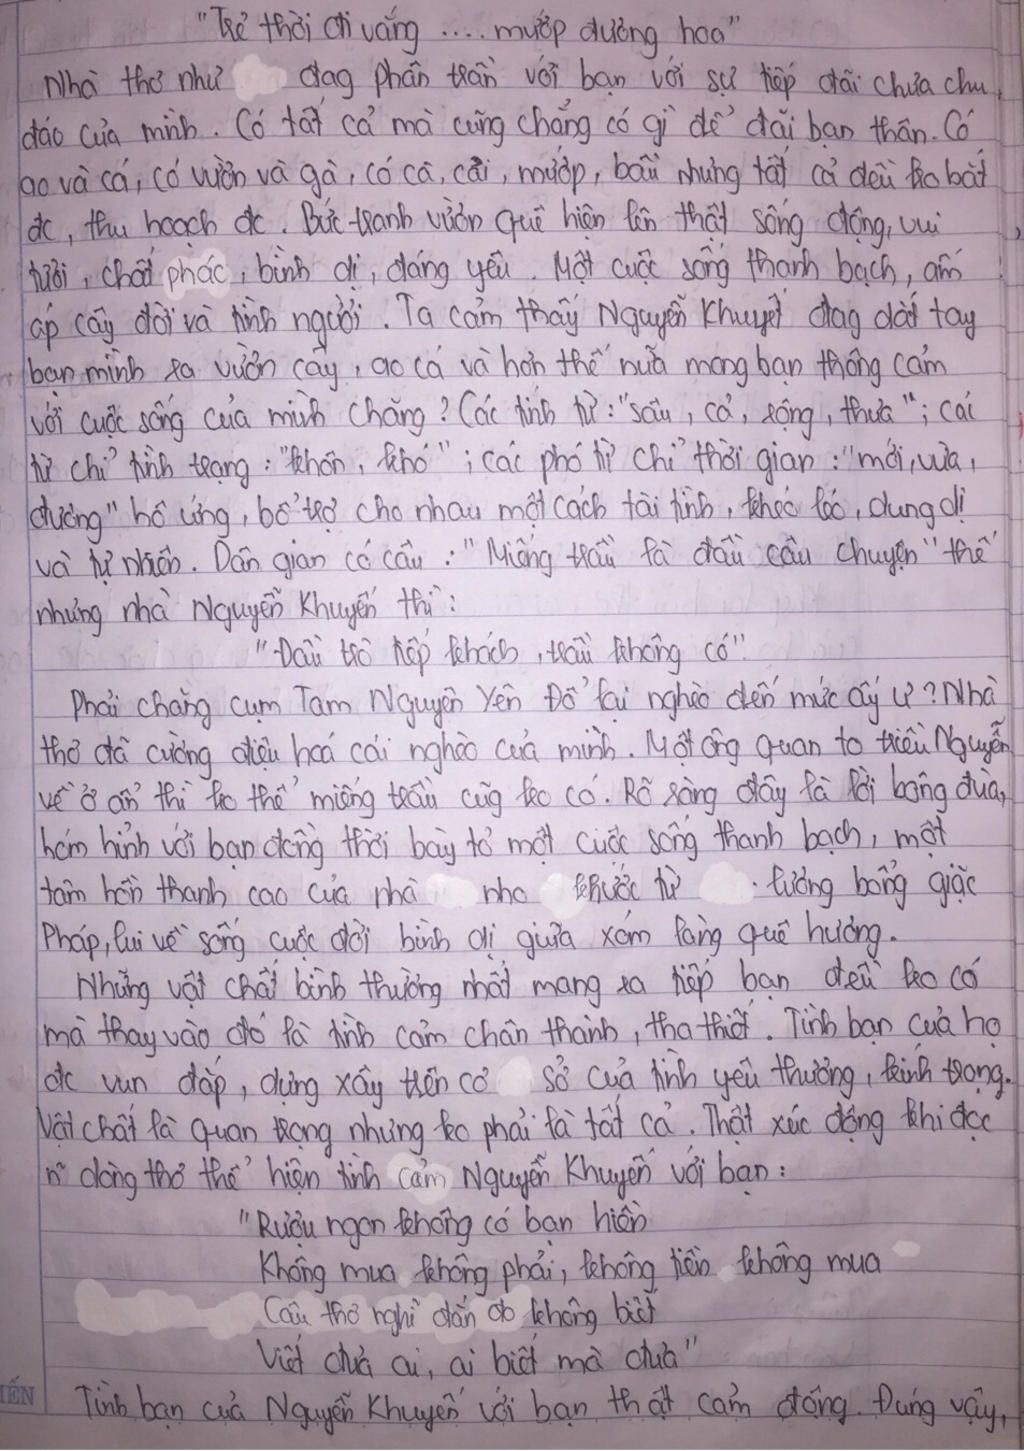 "Trẻ thời đi vắng .... mướp đương hoa"
Nhà thơ như đag phân trần với bạn với sự tiếp đãi chưa chu
đáo của mình. Có tất cả mà cũng chẳng có gì để đãi bạn thân. Có
ao và cá, có vườn và gà, có cà, cải, mướp, bầu nhưng tất cả đều ko bắt
đc, thu hoạch đc. Bức tranh vườn quê hiện lên thật sống động, vui
tươi, chất phác, bình dị, đáng yêu. Một cuộc sống thanh bạch, ấm
áp cây đời và tình người. Ta cảm thấy Nguyễn Khuyến đag dắt tay
bạn mình ra vườn cây, ao cá và hơn thế nữa mong bạn thông cảm
với cuộc sống của mình chăng? Các tính từ: "sâu, cả, rộng, thưa"; các
từ chỉ tình trạng: "khôn, khó"; các phó từ chỉ thời gian: "mới, vừa,
đương" hô ứng, bổ trợ cho nhau một cách tài tình, khéo léo, dung dị
và tự nhiên. Dân gian có câu: "Miếng trầu là đầu câu chuyện" thế
nhưng nhà Nguyễn Khuyến thì:
"Đầu trò tiếp khách, trầu không có".
Phải chăng cụm Tam Nguyên Yên Đổ lại nghèo đến mức ấy ư? Nhà
thơ đã cường điệu hoá cái nghèo của mình. Một ông quan to triều Nguyễn
về ở ẩn thì ko thể miếng trầu cũg ko có. Rõ ràng đây là lời bông đùa,
hóm hỉnh với bạn đồng thời bày tỏ một cuộc sống thanh bạch, một
tâm hồn thanh cao của nhà nho khước từ . lương bổng giặc
Pháp, lui về sống cuộc đời bình dị giữa xóm làng quê hương.
Những vật chất bình thường nhất mang ra tiếp bạn đều ko có
mà thay vào đó là tình cảm chân thành, tha thiết. Tình bạn của họ
đc vun đắp, dựng xây trên cơ sở của tình yêu thương, kính trọng.
Vật chất là quan trọng nhưng ko phải là tất cả. Thật xúc động khi đọc
n~ dòng thơ thể hiện tình cảm Nguyễn Khuyến với bạn:
"Rượu ngon không có bạn hiền
Không mua không phải, không tiền không mua
Câu thơ nghĩ đắn đo không biết
Viết đưa ai, ai biết mà đưa"
Tình bạn của Nguyễn Khuyến với bạn thật cảm động. Đúng vậy,